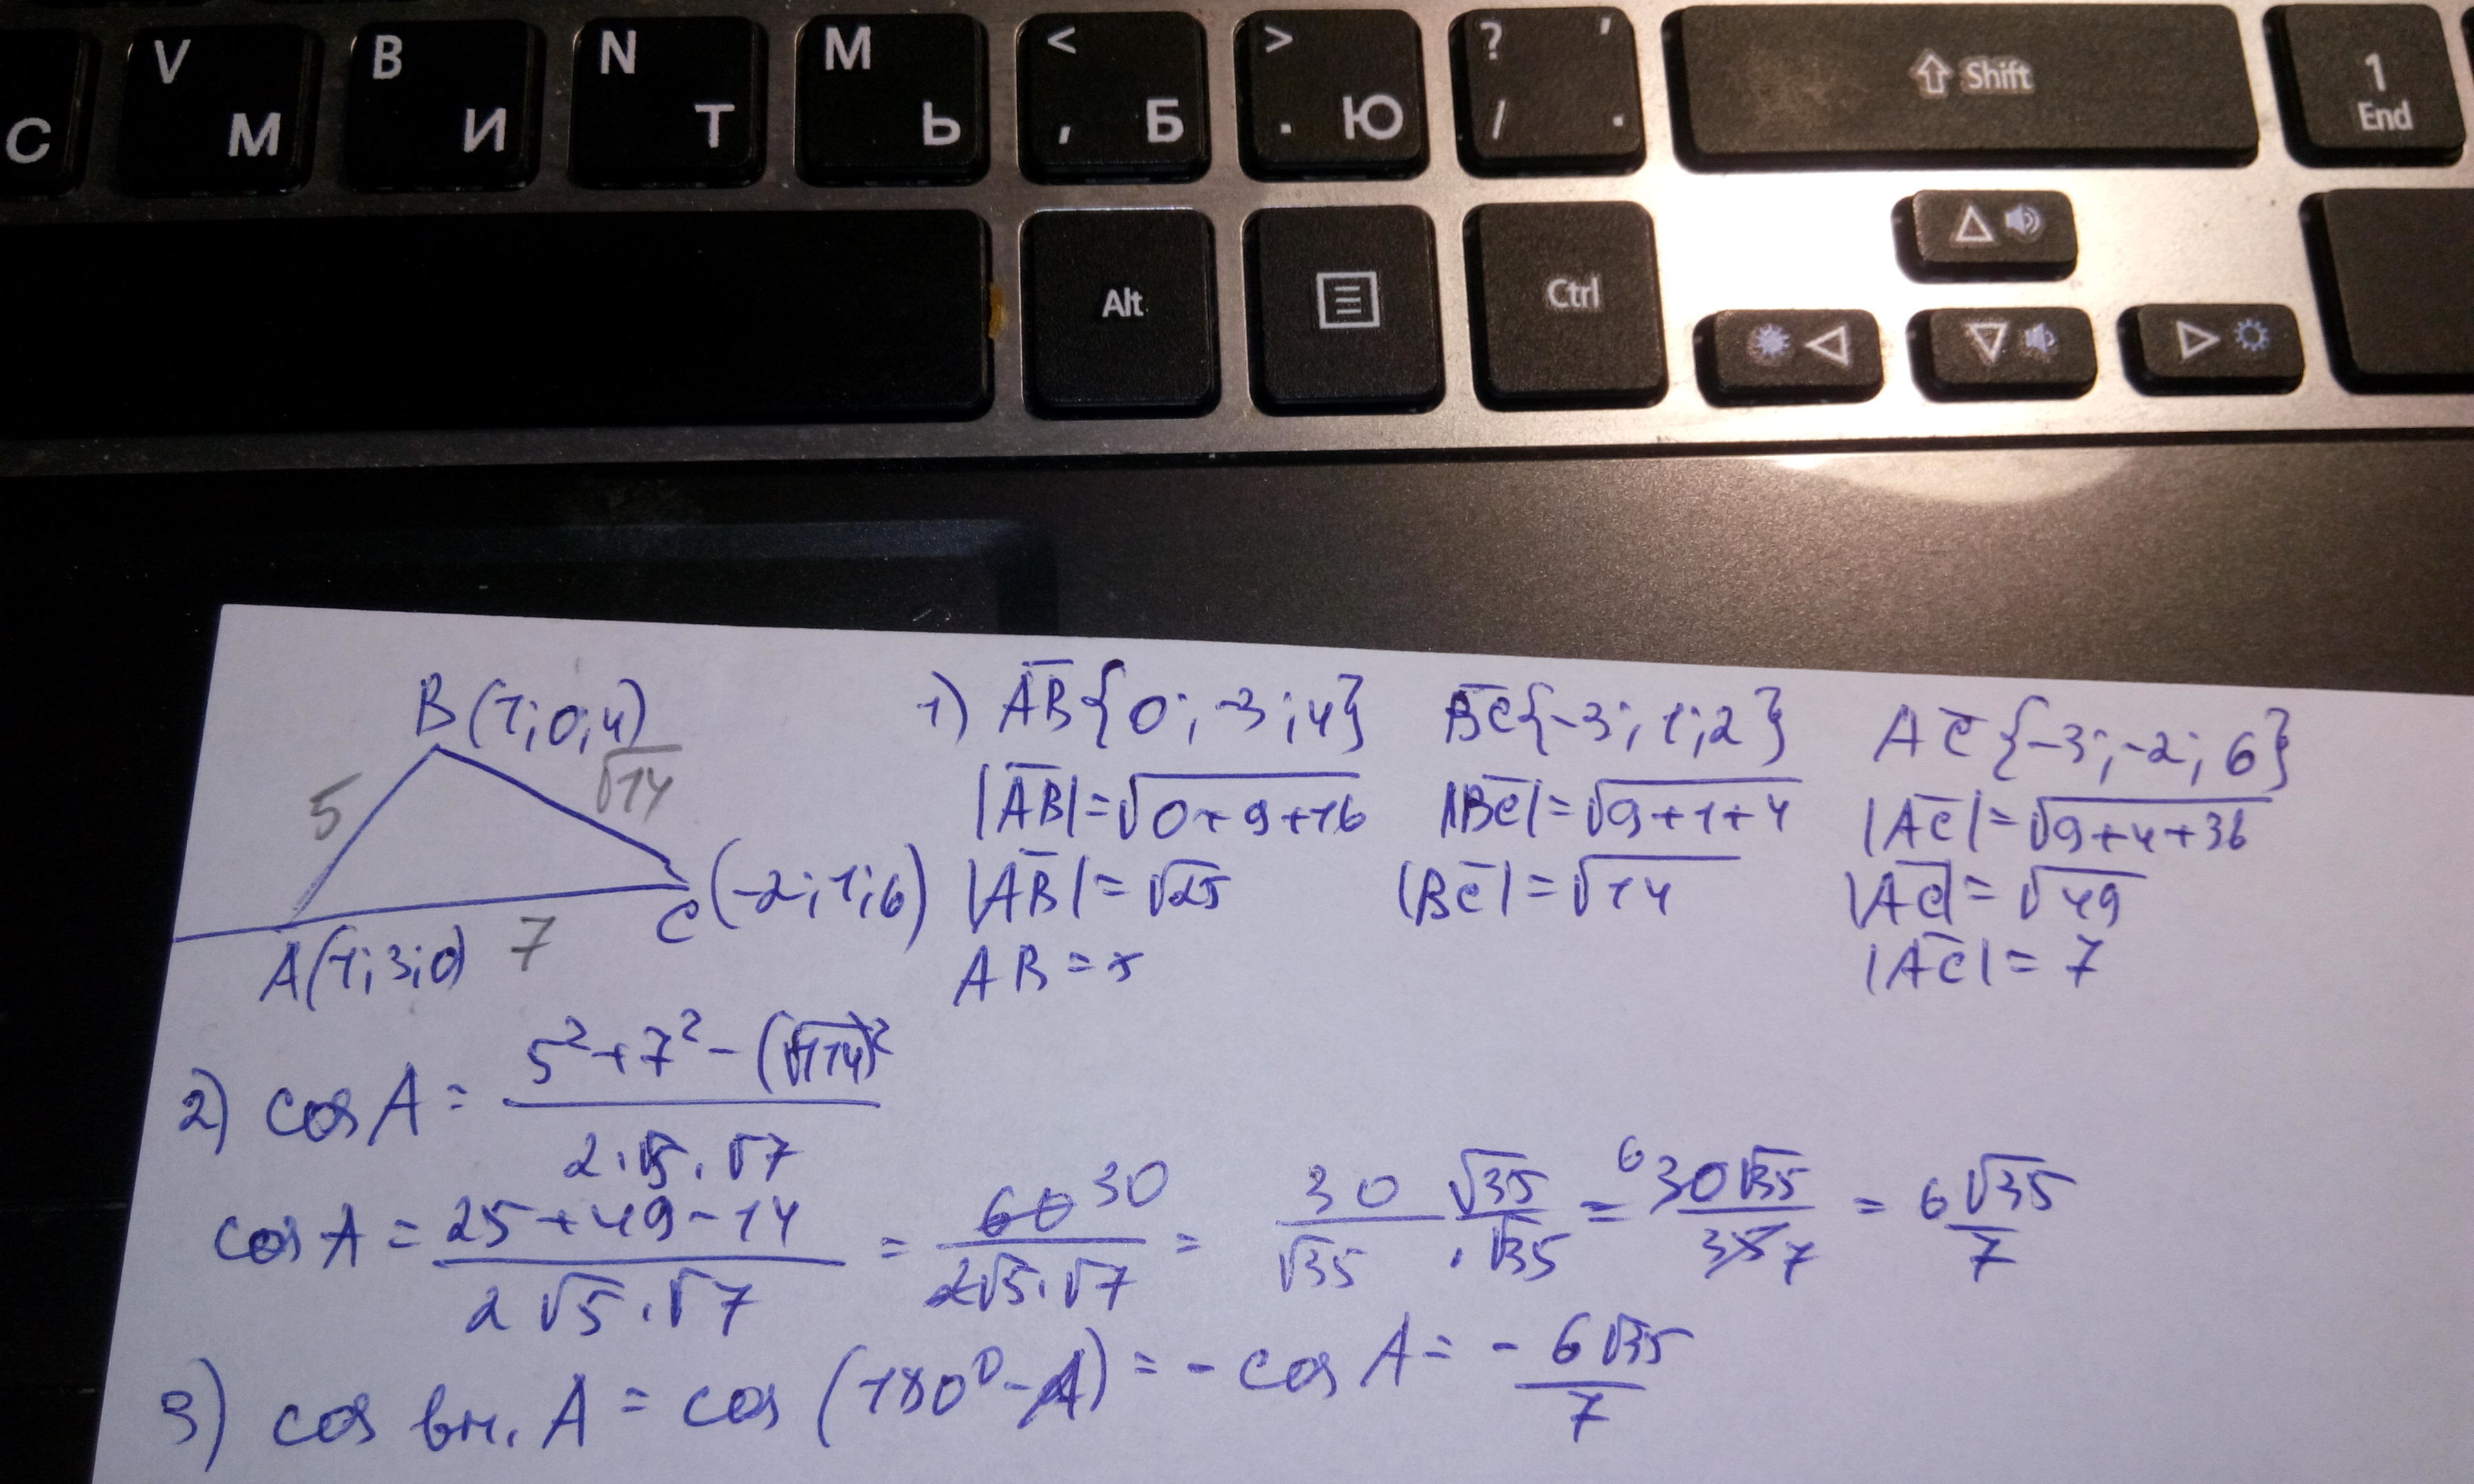 V B N M < > ? ' ⇧ Shift 1
С М И Т Ь , Б . Ю / . End
Alt Ctrl
B(1;0;4)
5
√14
C(-2;1;6)
A(1;3;0) 7
1) AB{0;-3;4} BC{-3;1;2} AC{-3;-2;6}
|AB|=√0+9+16 |BC|=√9+1+4 |AC|=√9+4+36
|AB|=√25 |BC|=√14 |AC|=√49
AB=5 |AC|=7
2) cos A = (5²+7²-(√14)²)/(2·√5·√7)
cos A = (25+49-14)/(2√5·√7) = 60 30/(2√5·√7) = 30/√35 √35/·√35 = 6 30√35/35 7 = 6√35/7
3) cos вн. A = cos (180⁰-A) = -cos A = -6√35/7